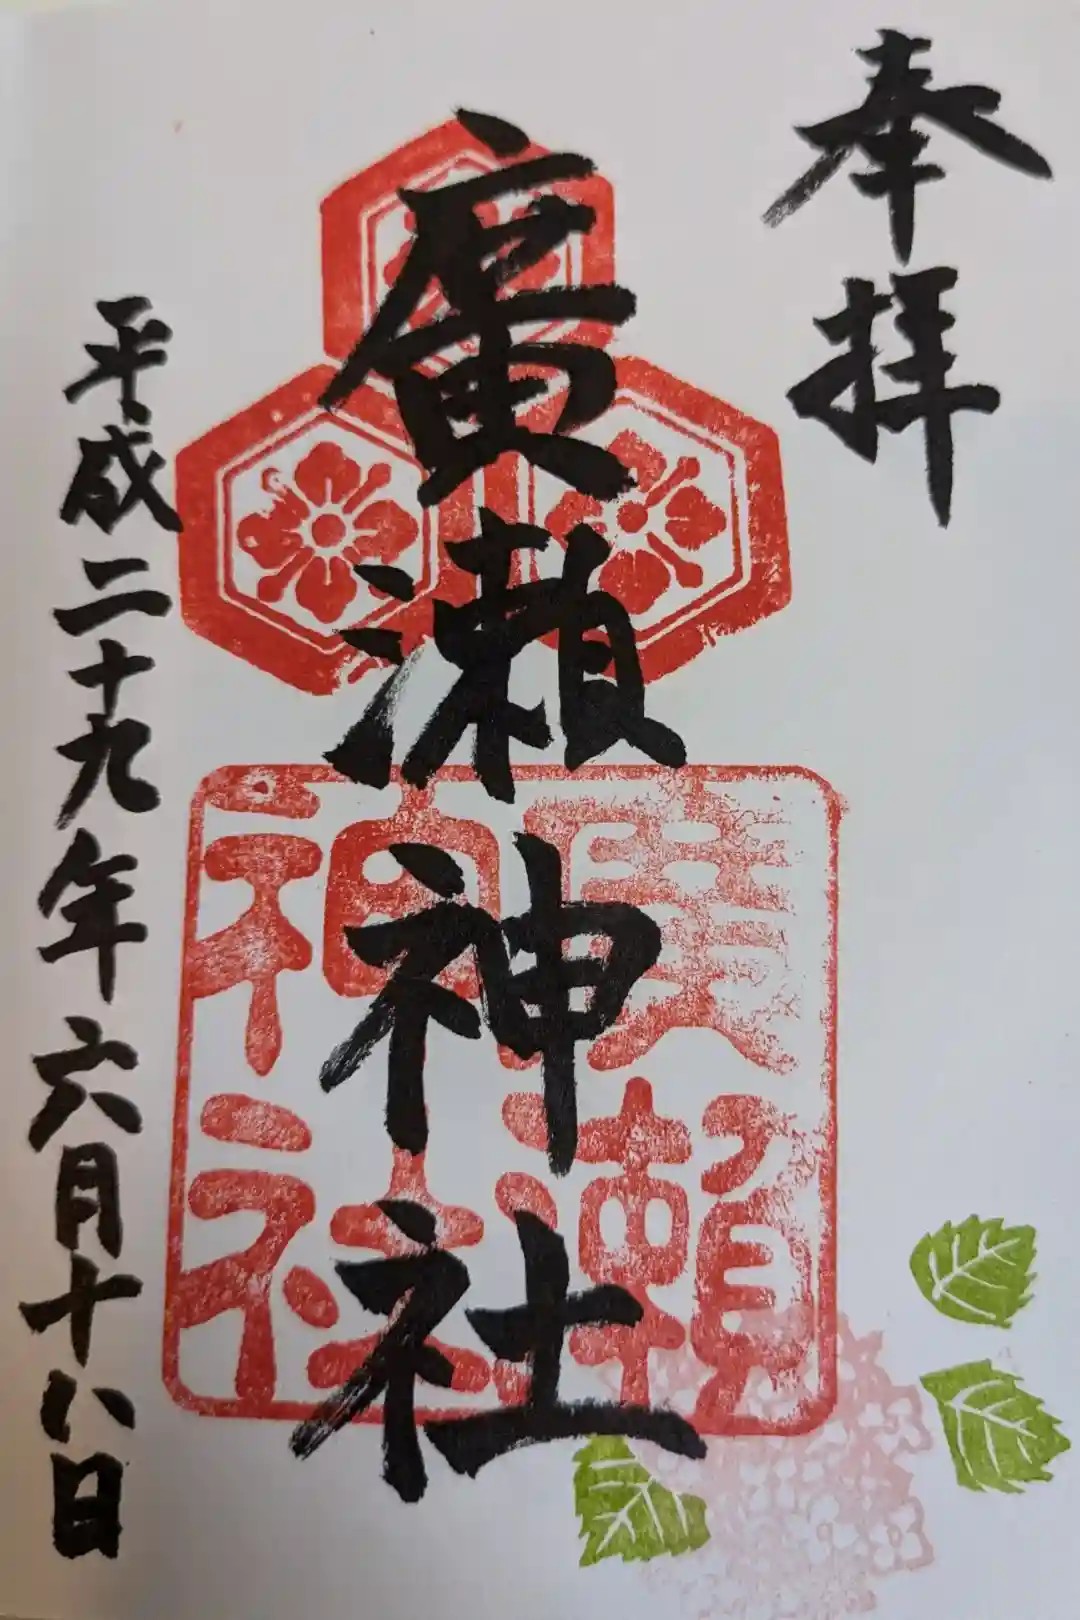 奉拝
廣瀬神社
廣瀬神社
平成二十九年六月十八日